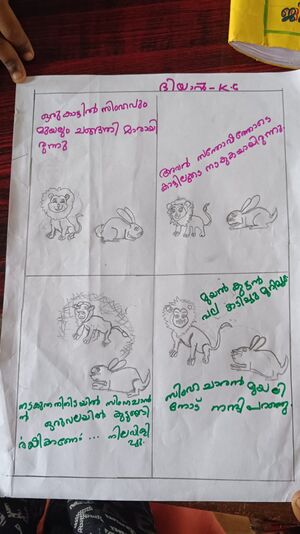 ദിയാൻ-K.S
ഒരു കാട്ടിൽ സിംഹവും
മുയലും ചങ്ങാതി മാരായി
രുന്നു
അവർ സന്തോഷത്തോടെ
കാട്ടിലൂടെ നടകുകയായിരുന്നു.
നടകുന്നതിനിടയിൽ സിംഹചാൻ
ൻ ഒരുവലയിൽ കുടുങ്ങി
രക്ഷികാണേ ... നിലവിളി
ച്ചു.
മുയൻ കുടൻ
വല കടിച്ചു മുറിച്ചു
സിംഹ ചാരൻ മുയലി
നോട് നന്ദി പറഞ്ഞു.